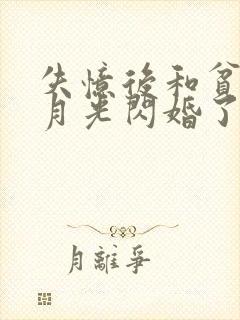 失憶後和貧
月光閃婚了
月離爭